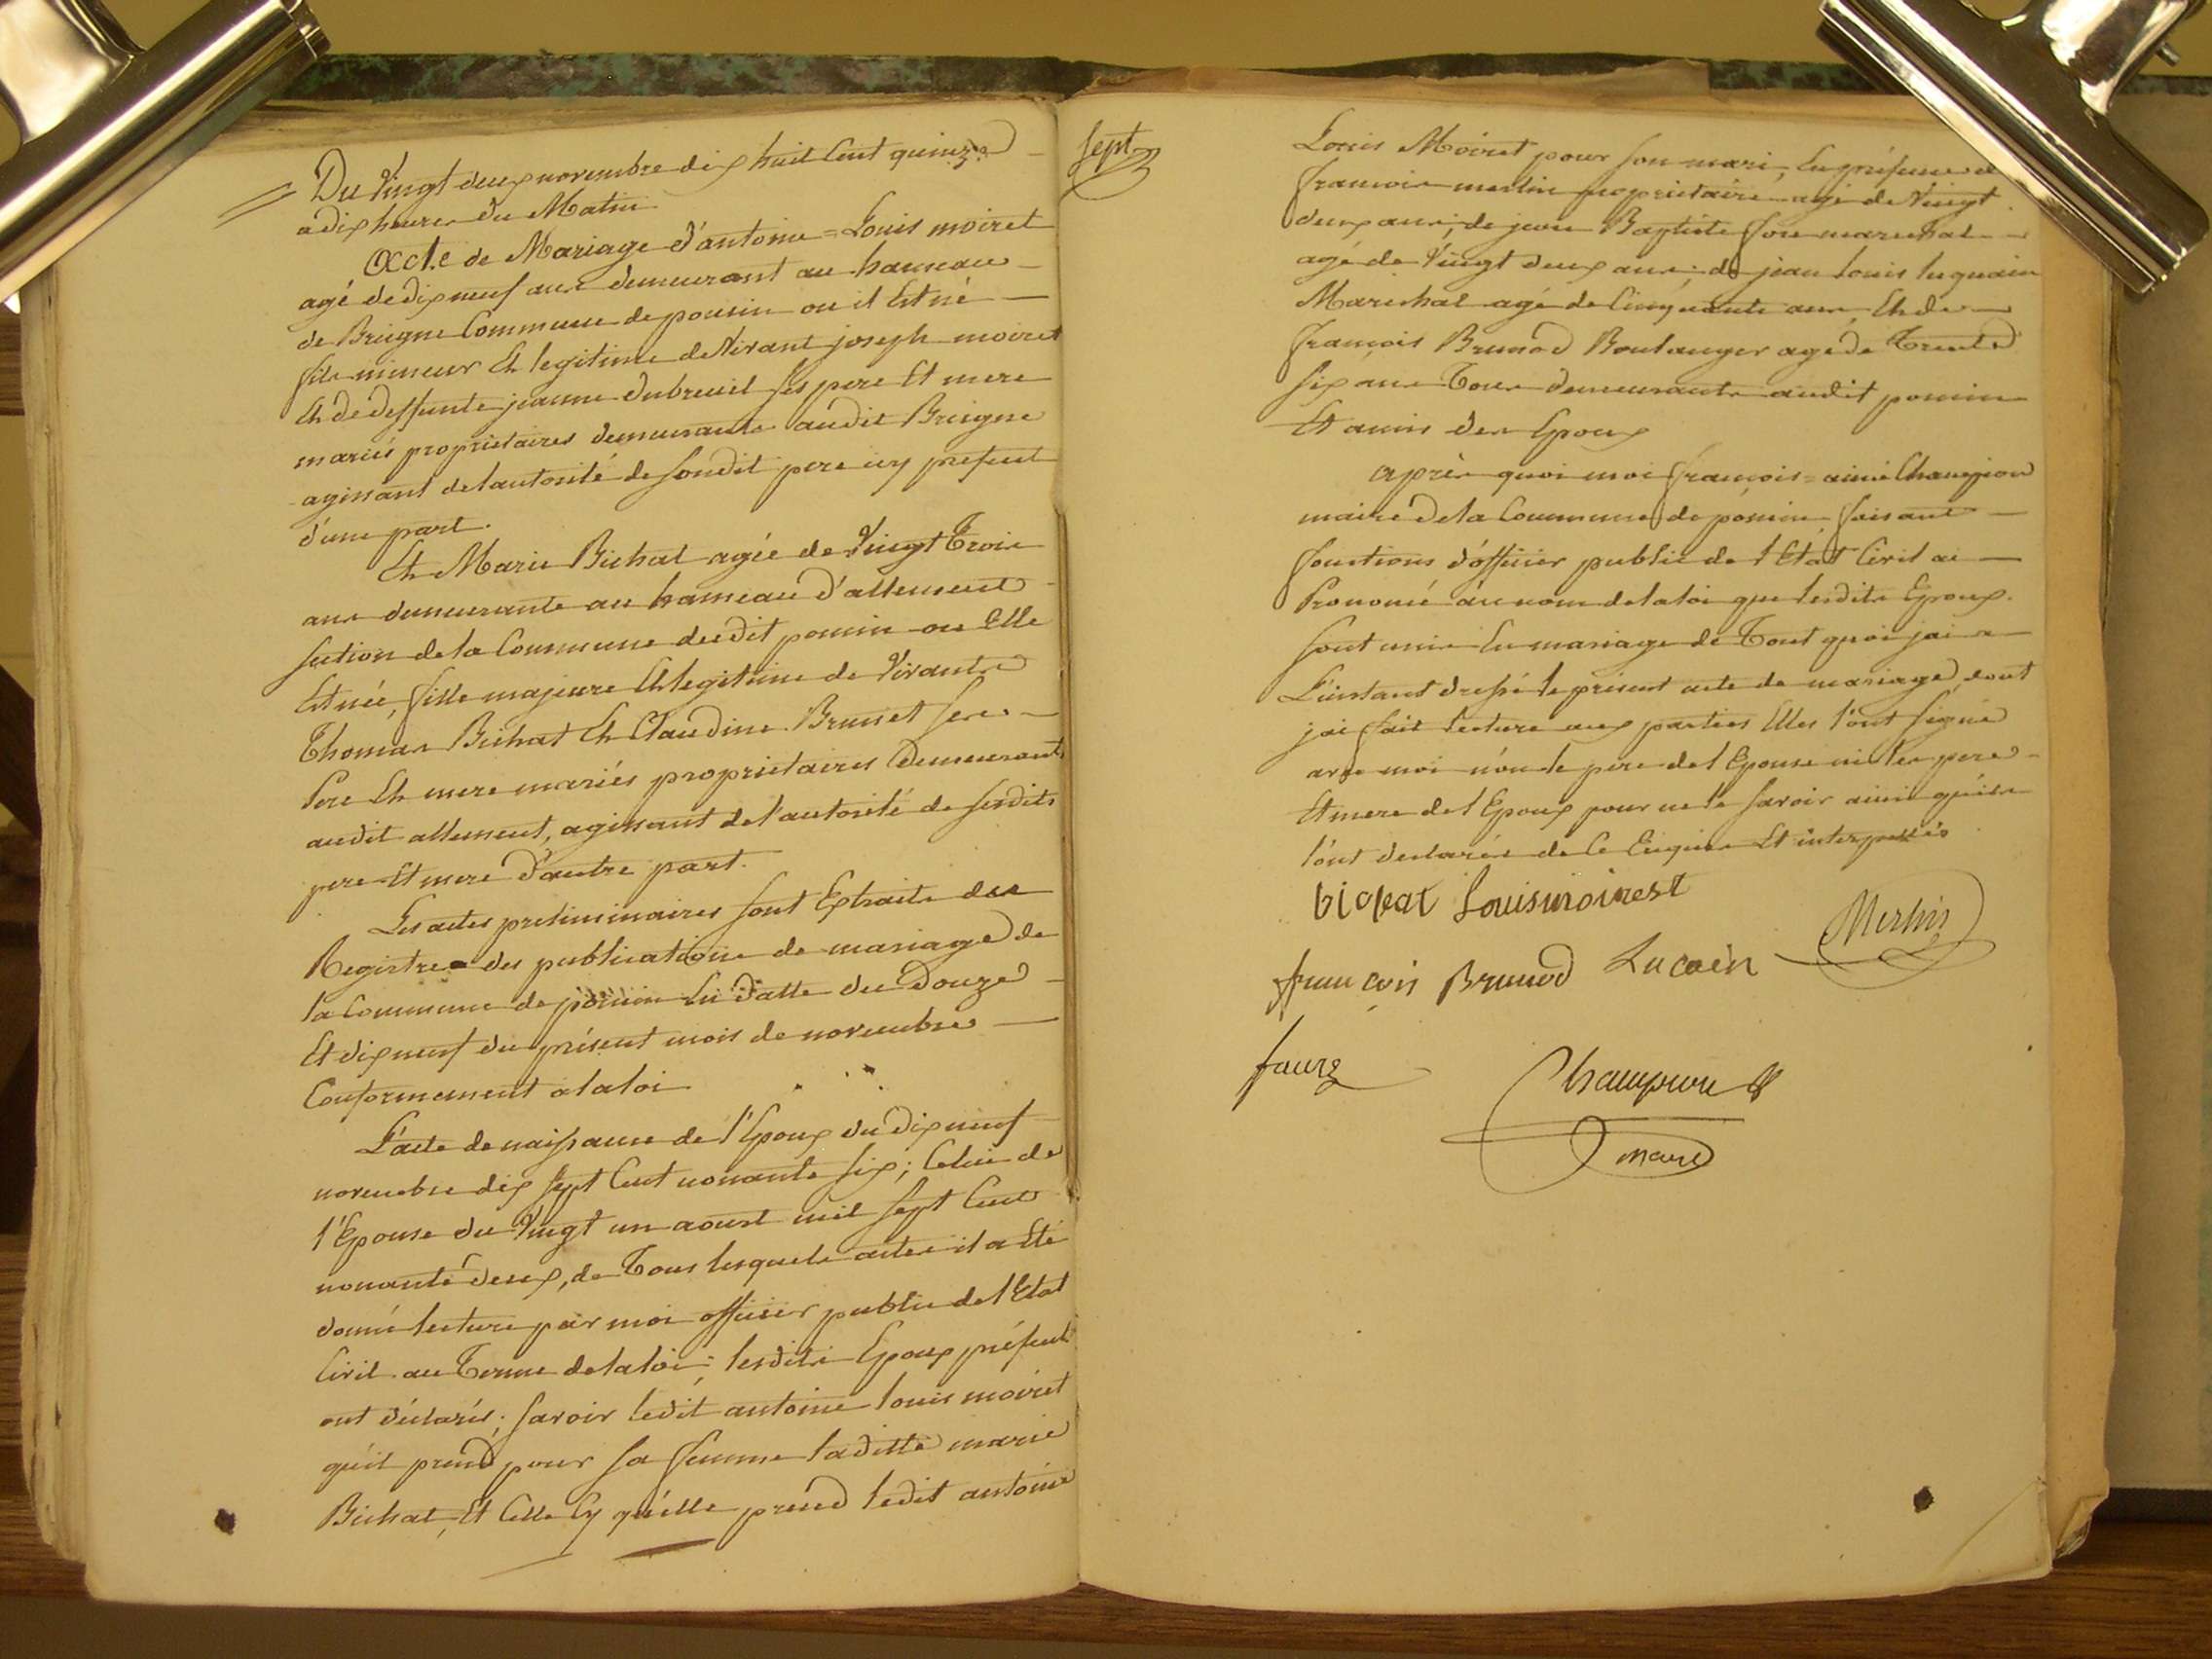 Du Vingt deux novembre dix huit Cent quinze
a dix heures du Matin
Acte de Mariage d'antoine=Louis moiret
agé de dix neuf ans demeurant au hameau
de Breigne Commune de poncin ou il Est né
fils mineur Et legitime de Vivant joseph moiret
Et de deffunte jeanne dubreuil ses pere Et mere
mariés proprietaires demeurants audit Breigne
agissant de l'autorité de sondit pere icy present
d'une part.
Et Marie Bichat agée de Vingt Trois
ans demeurante au hameau d'allement
section de la Commune dudit poncin ou Elle
Est née, fille majeure Et legitime de Vivants
Thomas Bichat Et Claudine Brunet ses
Pere Et mere mariés proprietaires demeurants
audit allement, agissant de l'autorité de sesdits
pere Et mere d'autre part.
Les actes preliminaires sont Extraits des
Registres des publications de mariage de
la Commune de poncin En datte du Douze
Et dix neuf du présent mois de novembre
Conformement a la loi
L'acte de naissance de l'Epoux du dix neuf
novembre dix sept Cent nonante six; Celui de
l'Epouse du Vingt un aoust mil sept Cent
nonante deux, de Tous lesquels actes il a Eté
donné lecture par moi officier public de l'Etat
Civil au Terme de la loi; lesdits Epoux présent
ont déclarés; savoir ledit antoine louis moiret
qu'il prend pour sa femme laditte marie
Bichat, Et Celle Cy qu'elle prend ledit antoine
sept
Louis Moiret pour son mari, En présence de
francois merlin proprietaire agé de Vingt
deux ans; de jean Baptiste fore marechal
agé de Vingt deux ans; de jean louis luquain
Marechal agé de Cinquante ans, Et de
françois Brunod Boulanger agé de Trente
six ans Tous demeurants audit poncin
Et amis des Epoux
après quoi moi françois=aimé Champion
maire de la Commune de poncin faisant
fonctions d'officier public de l'Etat Civil ai
Prononcé au nom de la loi que lesdits Epoux
sont unis En mariage de Tout quoi jai a
L'instant dressé le présent acte de mariage, dont
jai fait lecture aux parties Elles l'ont signé
avec moi non le pere de l'Epouse ni les pere
Et mere de l'Epoux pour ne le savoir ainsi qu'ils
l'ont declarés de Ce Enquis Et interpellés
bichat Louis moirest
Merlin
francois Brunod Lucain
faure
Champion
maire